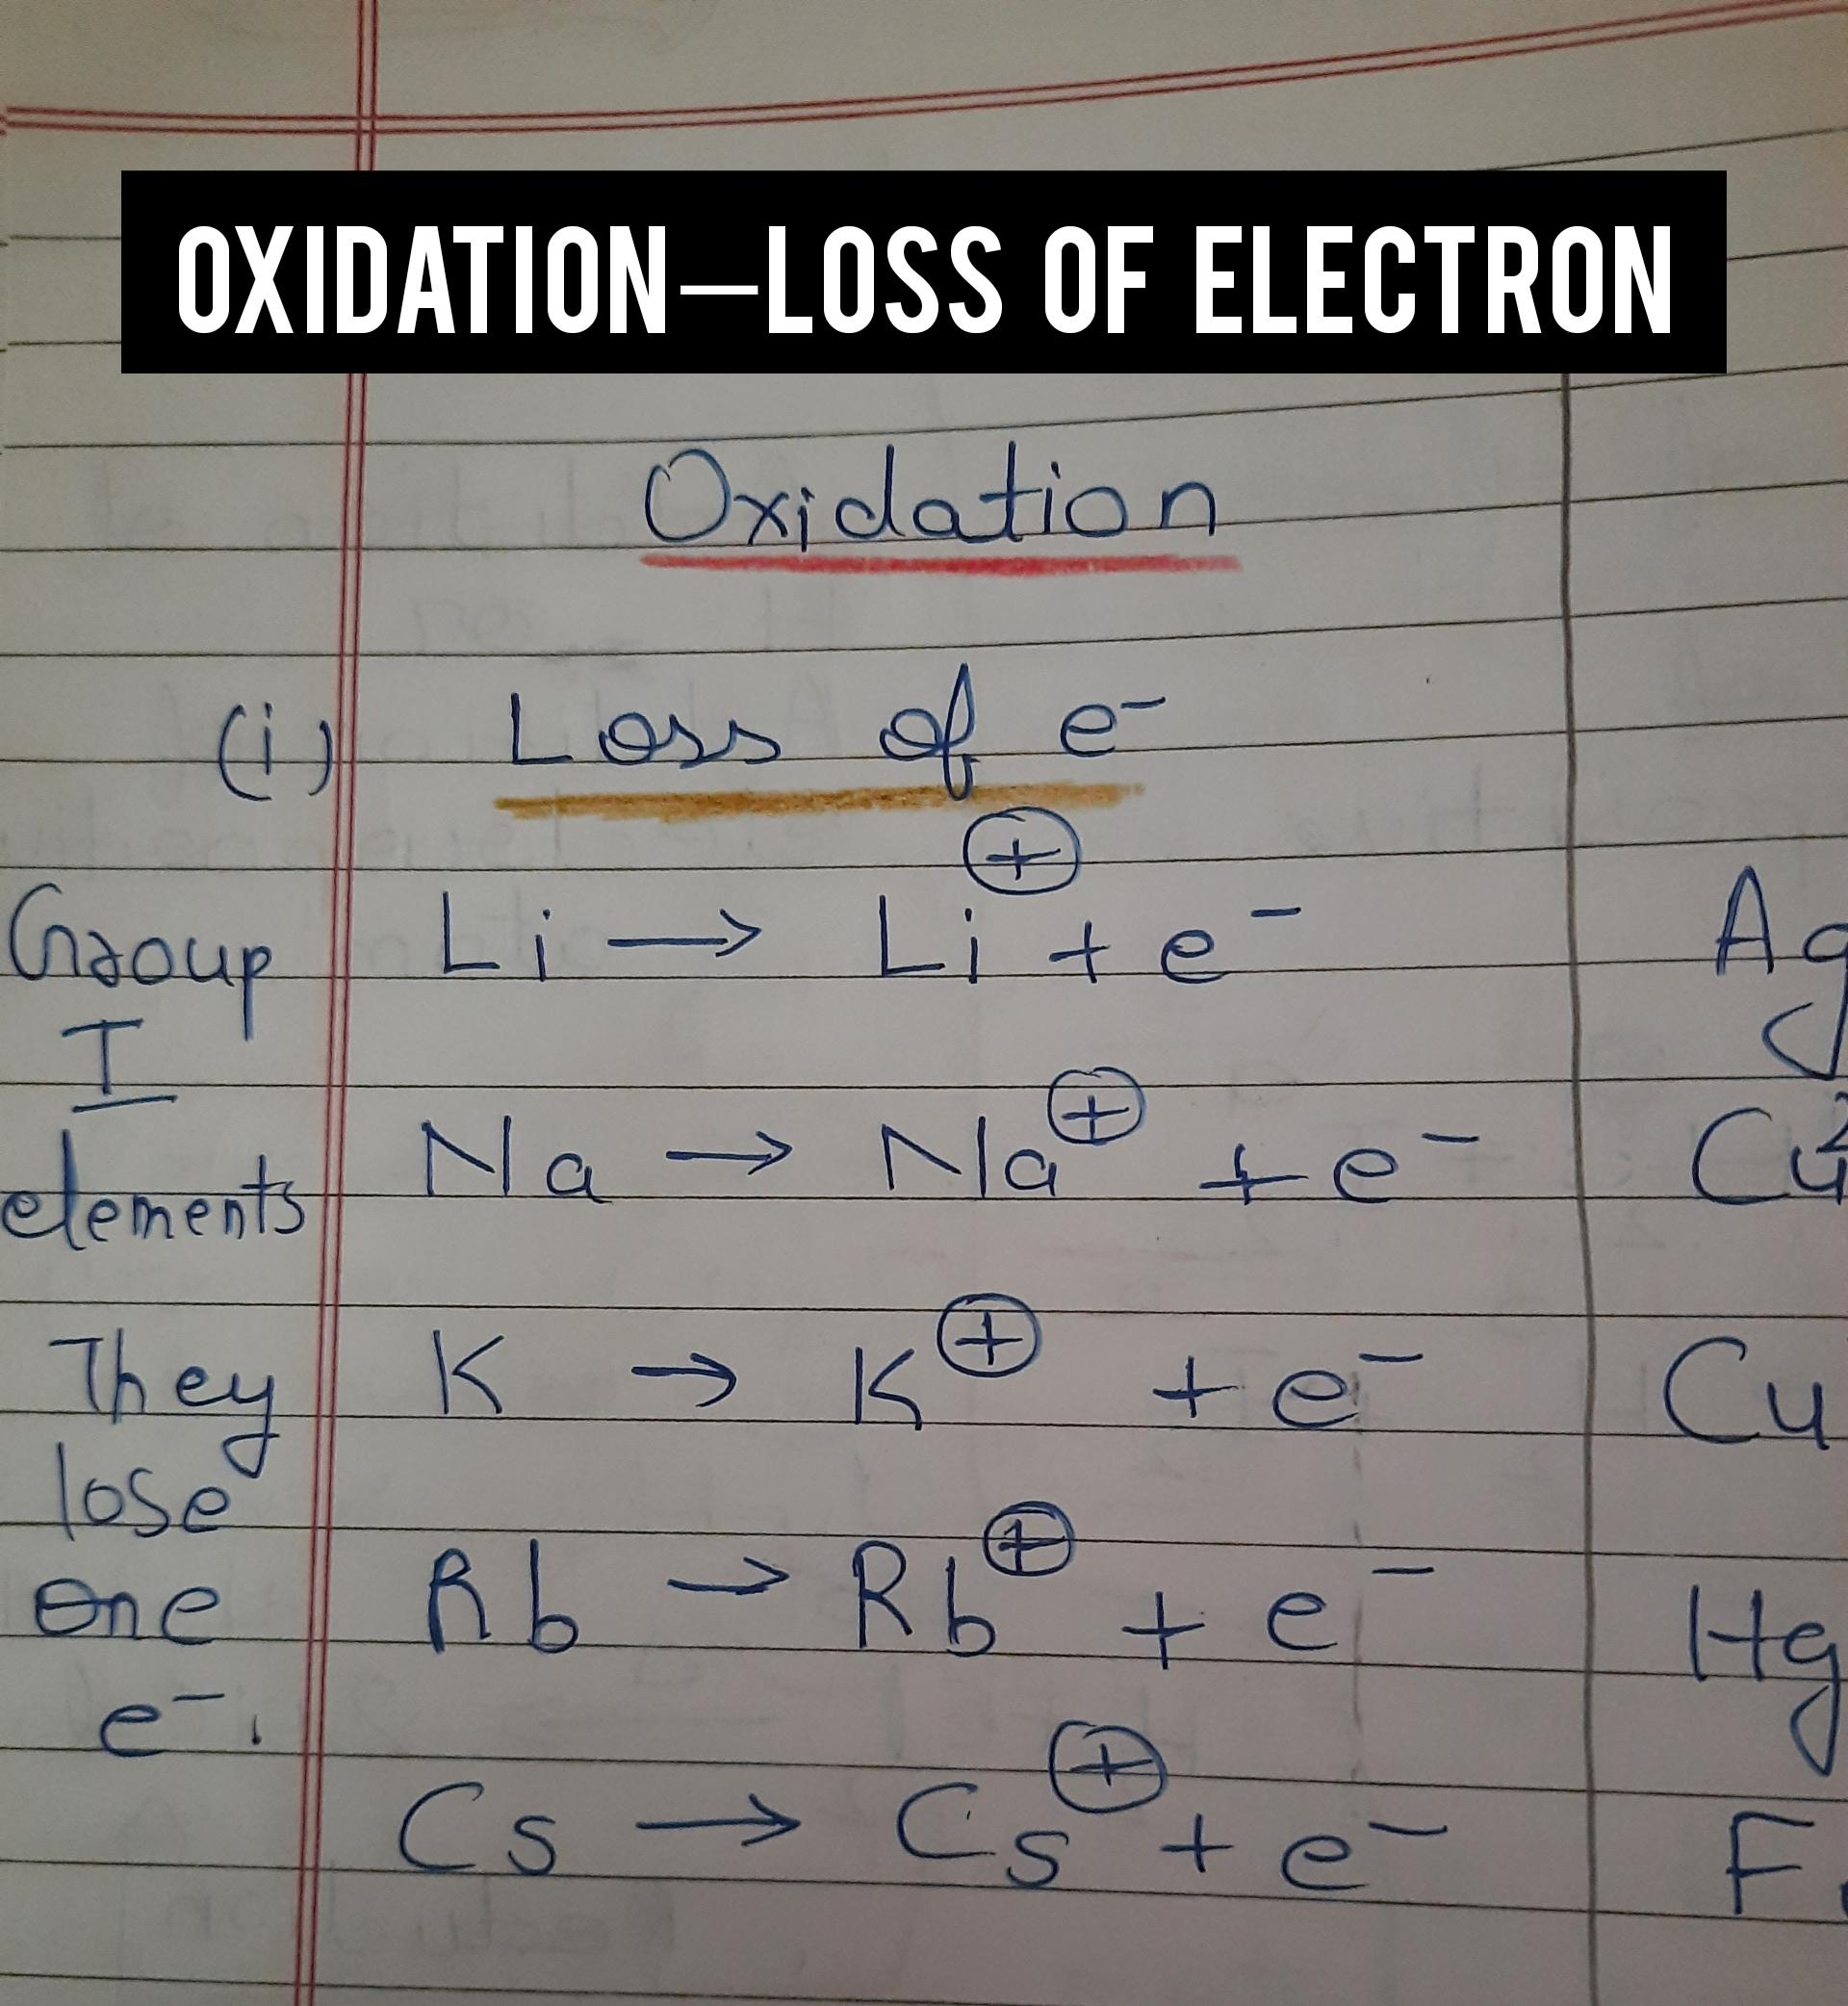 OXIDATION—LOSS OF ELECTRON
Oxidation
(i) Loss of e⁻
Group
I
elements
They
lose
one
e⁻.
Li → Li⊕ + e⁻
Na → Na⊕ + e⁻
K → K⊕ + e⁻
Rb → Rb⊕ + e⁻
Cs → Cs⊕ + e⁻
Ag
Cu²
Cu
Hg
F